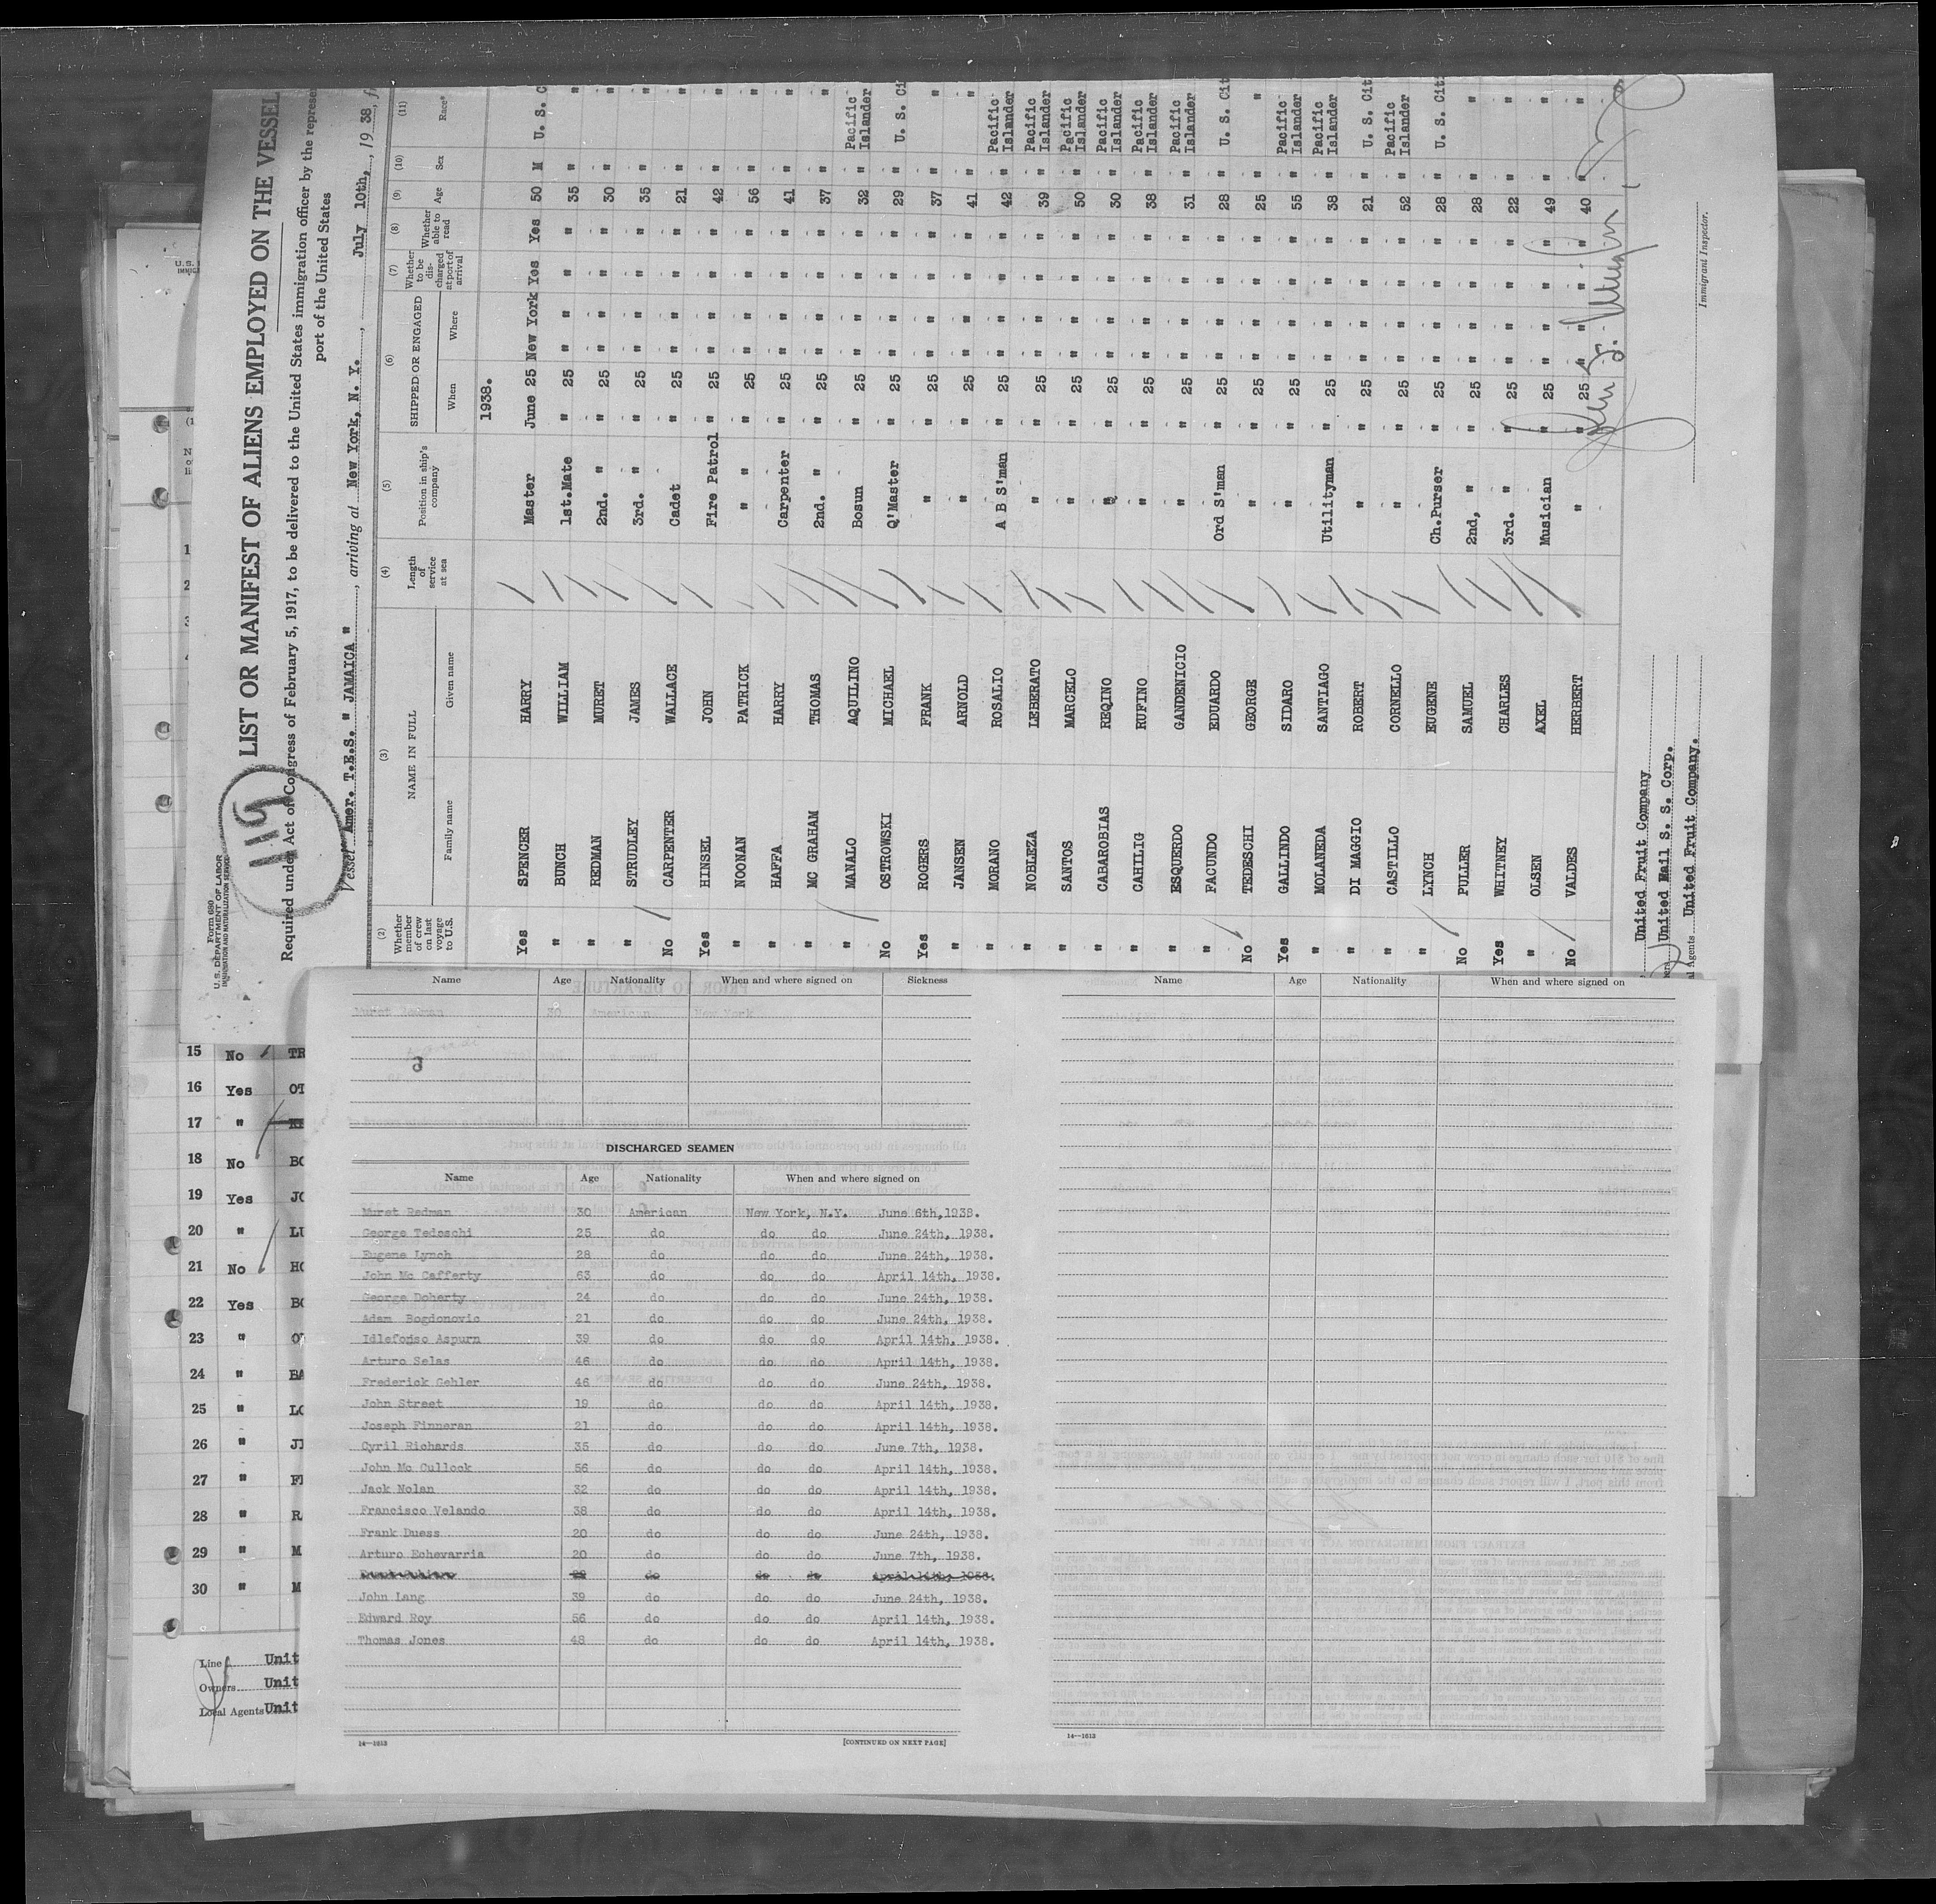 Form 680
U. S. DEPARTMENT OF LABOR
IMMIGRATION AND NATURALIZATION SERVICE
119
LIST OR MANIFEST OF ALIENS EMPLOYED ON THE VESSEL
Required under Act of Congress of February 5, 1917, to be delivered to the United States immigration officer by the
port of the United States
Vessel Amer. T.E.S. " JAMAICA ", arriving at New York, N. Y., July 10th, 1938,
(2) (3) (4) (5) (6) (7) (8) (9) (10) (11)
Whether member of crew on last voyage to U.S. NAME IN FULL Family name Given name Length of service at sea Position in ship's company SHIPPED OR ENGAGED When Where Whether to be discharged at port of arrival Whether able to read Age Sex Race*
1938.
Yes SPENCER HARRY Master June 25 New York Yes Yes 50 M U. S. C
" BUNCH WILLIAM 1st.Mate " 25 " " " " 35 " "
" REDMAN MURET 2nd. " " 25 " " " " 30 " "
" STRUDLEY JAMES 3rd. " " 25 " " " " 35 " "
No CARPENTER WALLACE Cadet " 25 " " " " 21 " "
Yes HINSEL JOHN Fire Patrol " 25 " " " " 42 " "
" NOONAN PATRICK " " " 25 " " " " 56 " "
" HAFFA HARRY Carpenter " 25 " " " " 41 " "
" MC GRAHAM THOMAS 2nd. " " 25 " " " " 37 " "
" MANALO AQUILINO Bosun " 25 " " " " 32 " Pacific Islander
No OSTROWSKI MICHAEL Q'Master " 25 " " " " 29 " U. S. Ci
Yes ROGERS FRANK " " 25 " " " " 37 " "
" JANSEN ARNOLD " " 25 " " " " 41 " "
" MORANO ROSALIO A B S'man " 25 " " " " 42 " Pacific Islander
" NOBLEZA LEBERATO " " 25 " " " " 39 " Pacific Islander
" SANTOS MARCELO " " 25 " " " " 50 " Pacific Islander
" CABAROBIAS REQINO " " 25 " " " " 30 " Pacific Islander
" CAHILIG RUFINO " " 25 " " " " 38 " Pacific Islander
" ESQUERDO GANDENICIO " " 25 " " " " 31 " Pacific Islander
" FACUNDO EDUARDO Ord S'man " 25 " " " " 28 " U. S. Cit
No TEDESCHI GEORGE " " 25 " " " " 25 " "
Yes GALLINDO SIDARO " " 25 " " " " 55 " Pacific Islander
" MOLANEDA SANTIAGO Utilityman " 25 " " " " 38 " Pacific Islander
" DI MAGGIO ROBERT " " 25 " " " " 21 " U. S. Cit
" CASTILLO CORNELLO " " 25 " " " " 52 " Pacific Islander
" LYNCH EUGENE Ch.Purser " 25 " " " " 28 " U. S. Cit
No PULLER SAMUEL 2nd, " " 25 " " " " 28 " "
Yes WHITNEY CHARLES 3rd. " " 25 " " " " 22 " "
" OLSEN AXEL Musician " 25 " " " " 49 " "
No VALDES HERBERT " " 25 " " " " 40 " "
United Fruit Company
United Mail S. S. Corp.
Agents United Fruit Company.
Immigrant Inspector.
15 No TR
16 Yes OT
17 "
18 No BO
19 Yes JO
20 " LU
21 No HO
22 Yes BO
23 " OT
24 " BA
25 " LO
26 " JI
27 " FI
28 " R
29 " M
30 " M
Line Unit
Owners Unit
Local Agents Unit
Name Age Nationality When and where signed on Sickness
Muret Redman 30 American New York
DISCHARGED SEAMEN
Name Age Nationality When and where signed on
Muret Redman 30 American New York, N.Y. June 6th,1938.
George Tedeschi 25 do do do June 24th, 1938.
Eugene Lynch 28 do do do June 24th, 1938.
John Mc Cafferty 63 do do do April 14th, 1938.
George Doherty 24 do do do June 24th, 1938.
Adam Bogdonovic 21 do do do June 24th, 1938.
Idlefonso Aspurn 39 do do do April 14th, 1938.
Arturo Selas 46 do do do April 14th, 1938.
Frederick Gehler 46 do do do June 24th, 1938.
John Street 19 do do do April 14th, 1938.
Joseph Finneran 21 do do do April 14th, 1938.
Cyril Richards 35 do do do June 7th, 1938.
John Mc Cullock 56 do do do April 14th, 1938.
Jack Nolan 32 do do do April 14th, 1938.
Francisco Velando 38 do do do April 14th, 1938.
Frank Duess 20 do do do June 24th, 1938.
Arturo Echevarria 20 do do do June 7th, 1938.
do do do April 14th, 1938.
John Lang 39 do do do June 24th, 1938.
Edward Roy 56 do do do April 14th, 1938.
Thomas Jones 48 do do do April 14th, 1938.
14—1613 [CONTINUED ON NEXT PAGE]
Name Age Nationality When and where signed on
14—1613